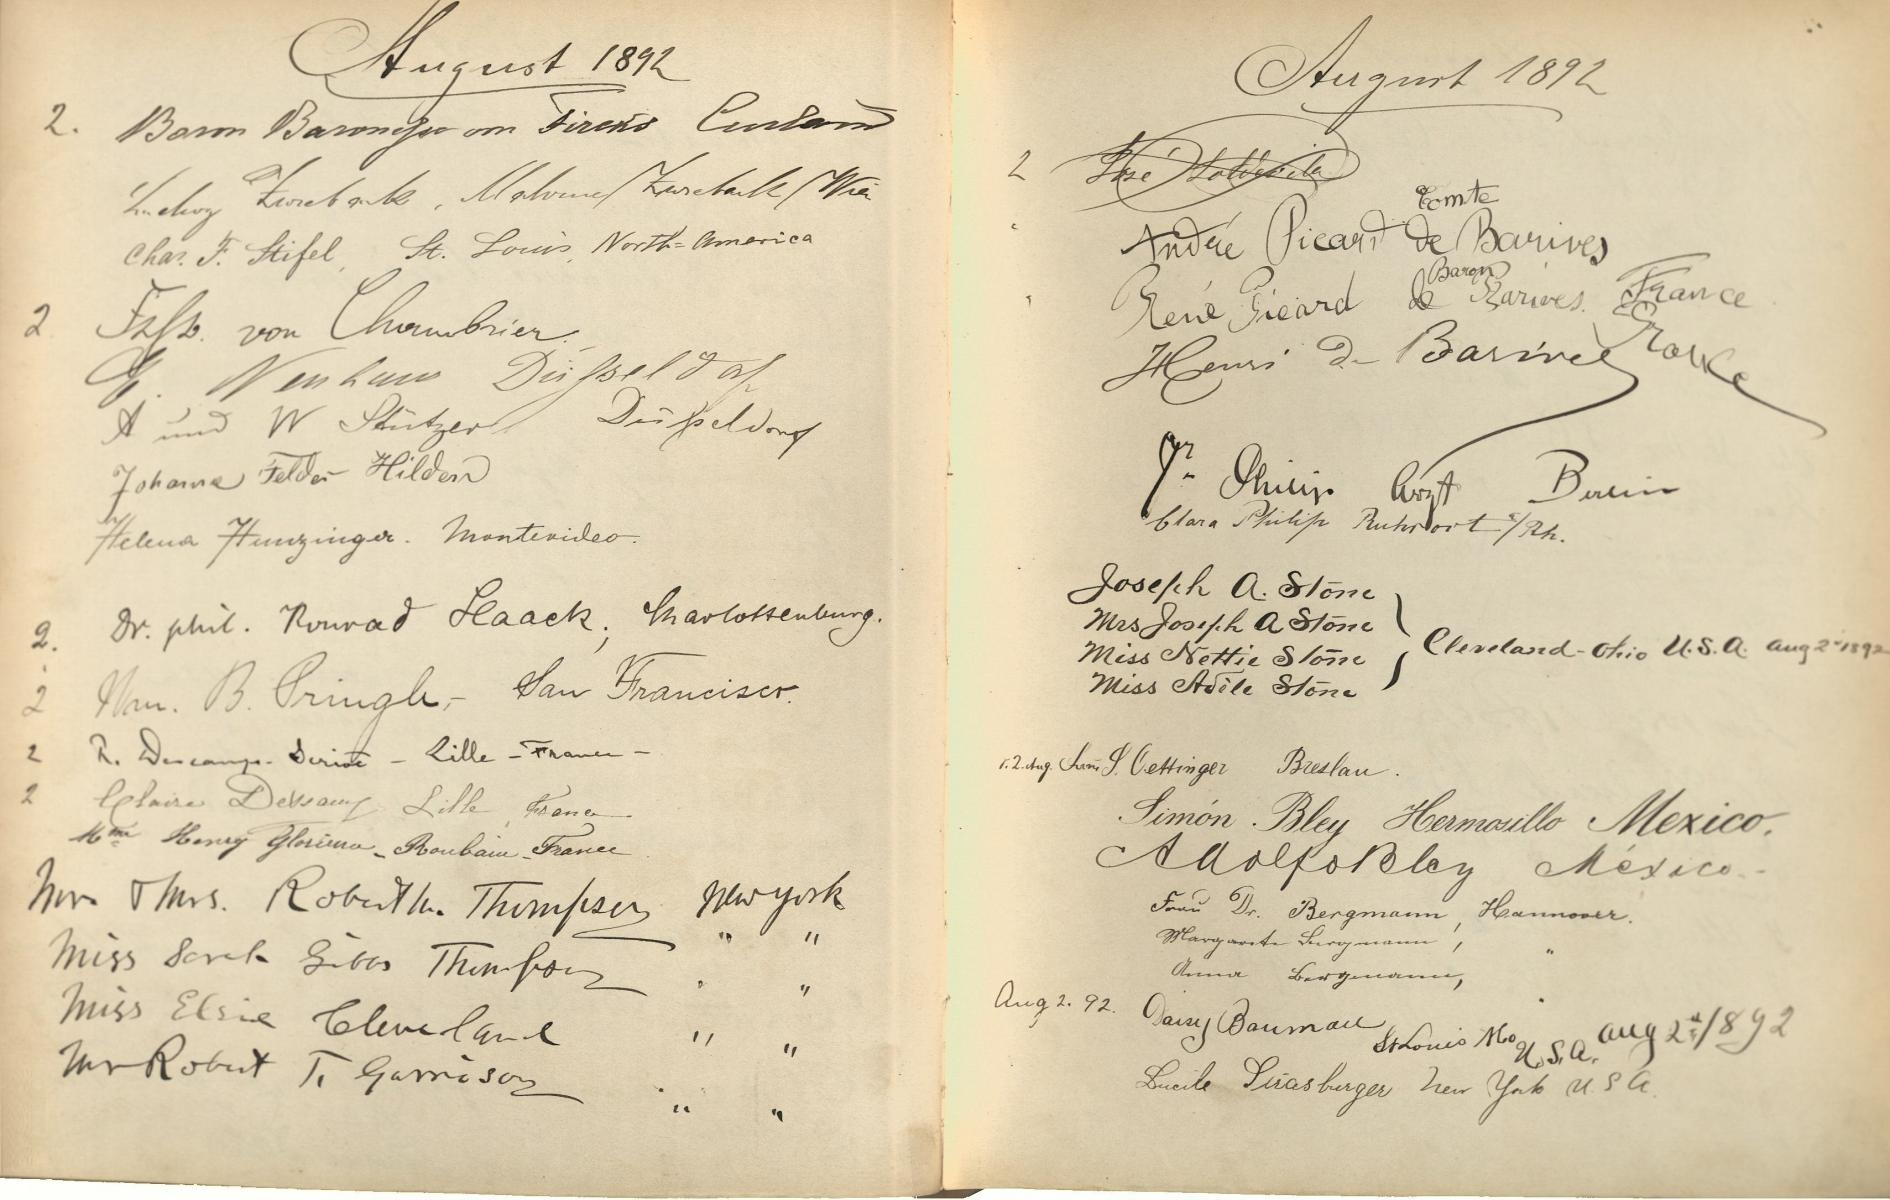 August 1892
2. Baron Baronesse von Fircks Curland
Ludwig Zwieback, Malvine Zwieback / Wien
Chas. F. Stifel, St. Louis, North=America
2 von Chambrier.
G. Neuhaus Düsseldorf
A und W Stützer Düsseldorf
Johanna Felder Hilden
Helena Hunzinger. Montevideo.
2. Dr. phil. Konrad Haack, Charlottenburg.
2 Wm. B. Pringle, - San Francisco.
2 R. Descamps - Lille - France -
2 Claire Lille, France
Mme Henry Glorieux - Roubaix - France
Mr & Mrs. Robert M. Thompson New York
Miss Sarah Gibbs Thompson " "
Miss Elsie Cleveland " "
Mr Robert T. Garrison " "
August 1892
2 José
André Picard Comte de Barives
René Picard Baron de Barives. France
Henri de Barives France
Dr Philip Arzt Berlin
Clara Philip Ruhrort a/Rh.
Joseph A. Stone
Mrs Joseph A Stone
Miss Nettie Stone
Miss Adele Stone
Cleveland - Ohio U.S.A. Aug 2d 1892
2. Aug. S. Oettinger Breslau.
Simón Bley Hermosillo Mexico.
Adolfo Bley México.
Frau Dr. Bergmann, Hannover.
Margarete Bergmann, "
Anna Bergmann, "
Aug 2. 92. Daisy Bauman St Louis Mo U.S.A. Aug 2d 1892
Lucile Strasburger New York U.S.A.